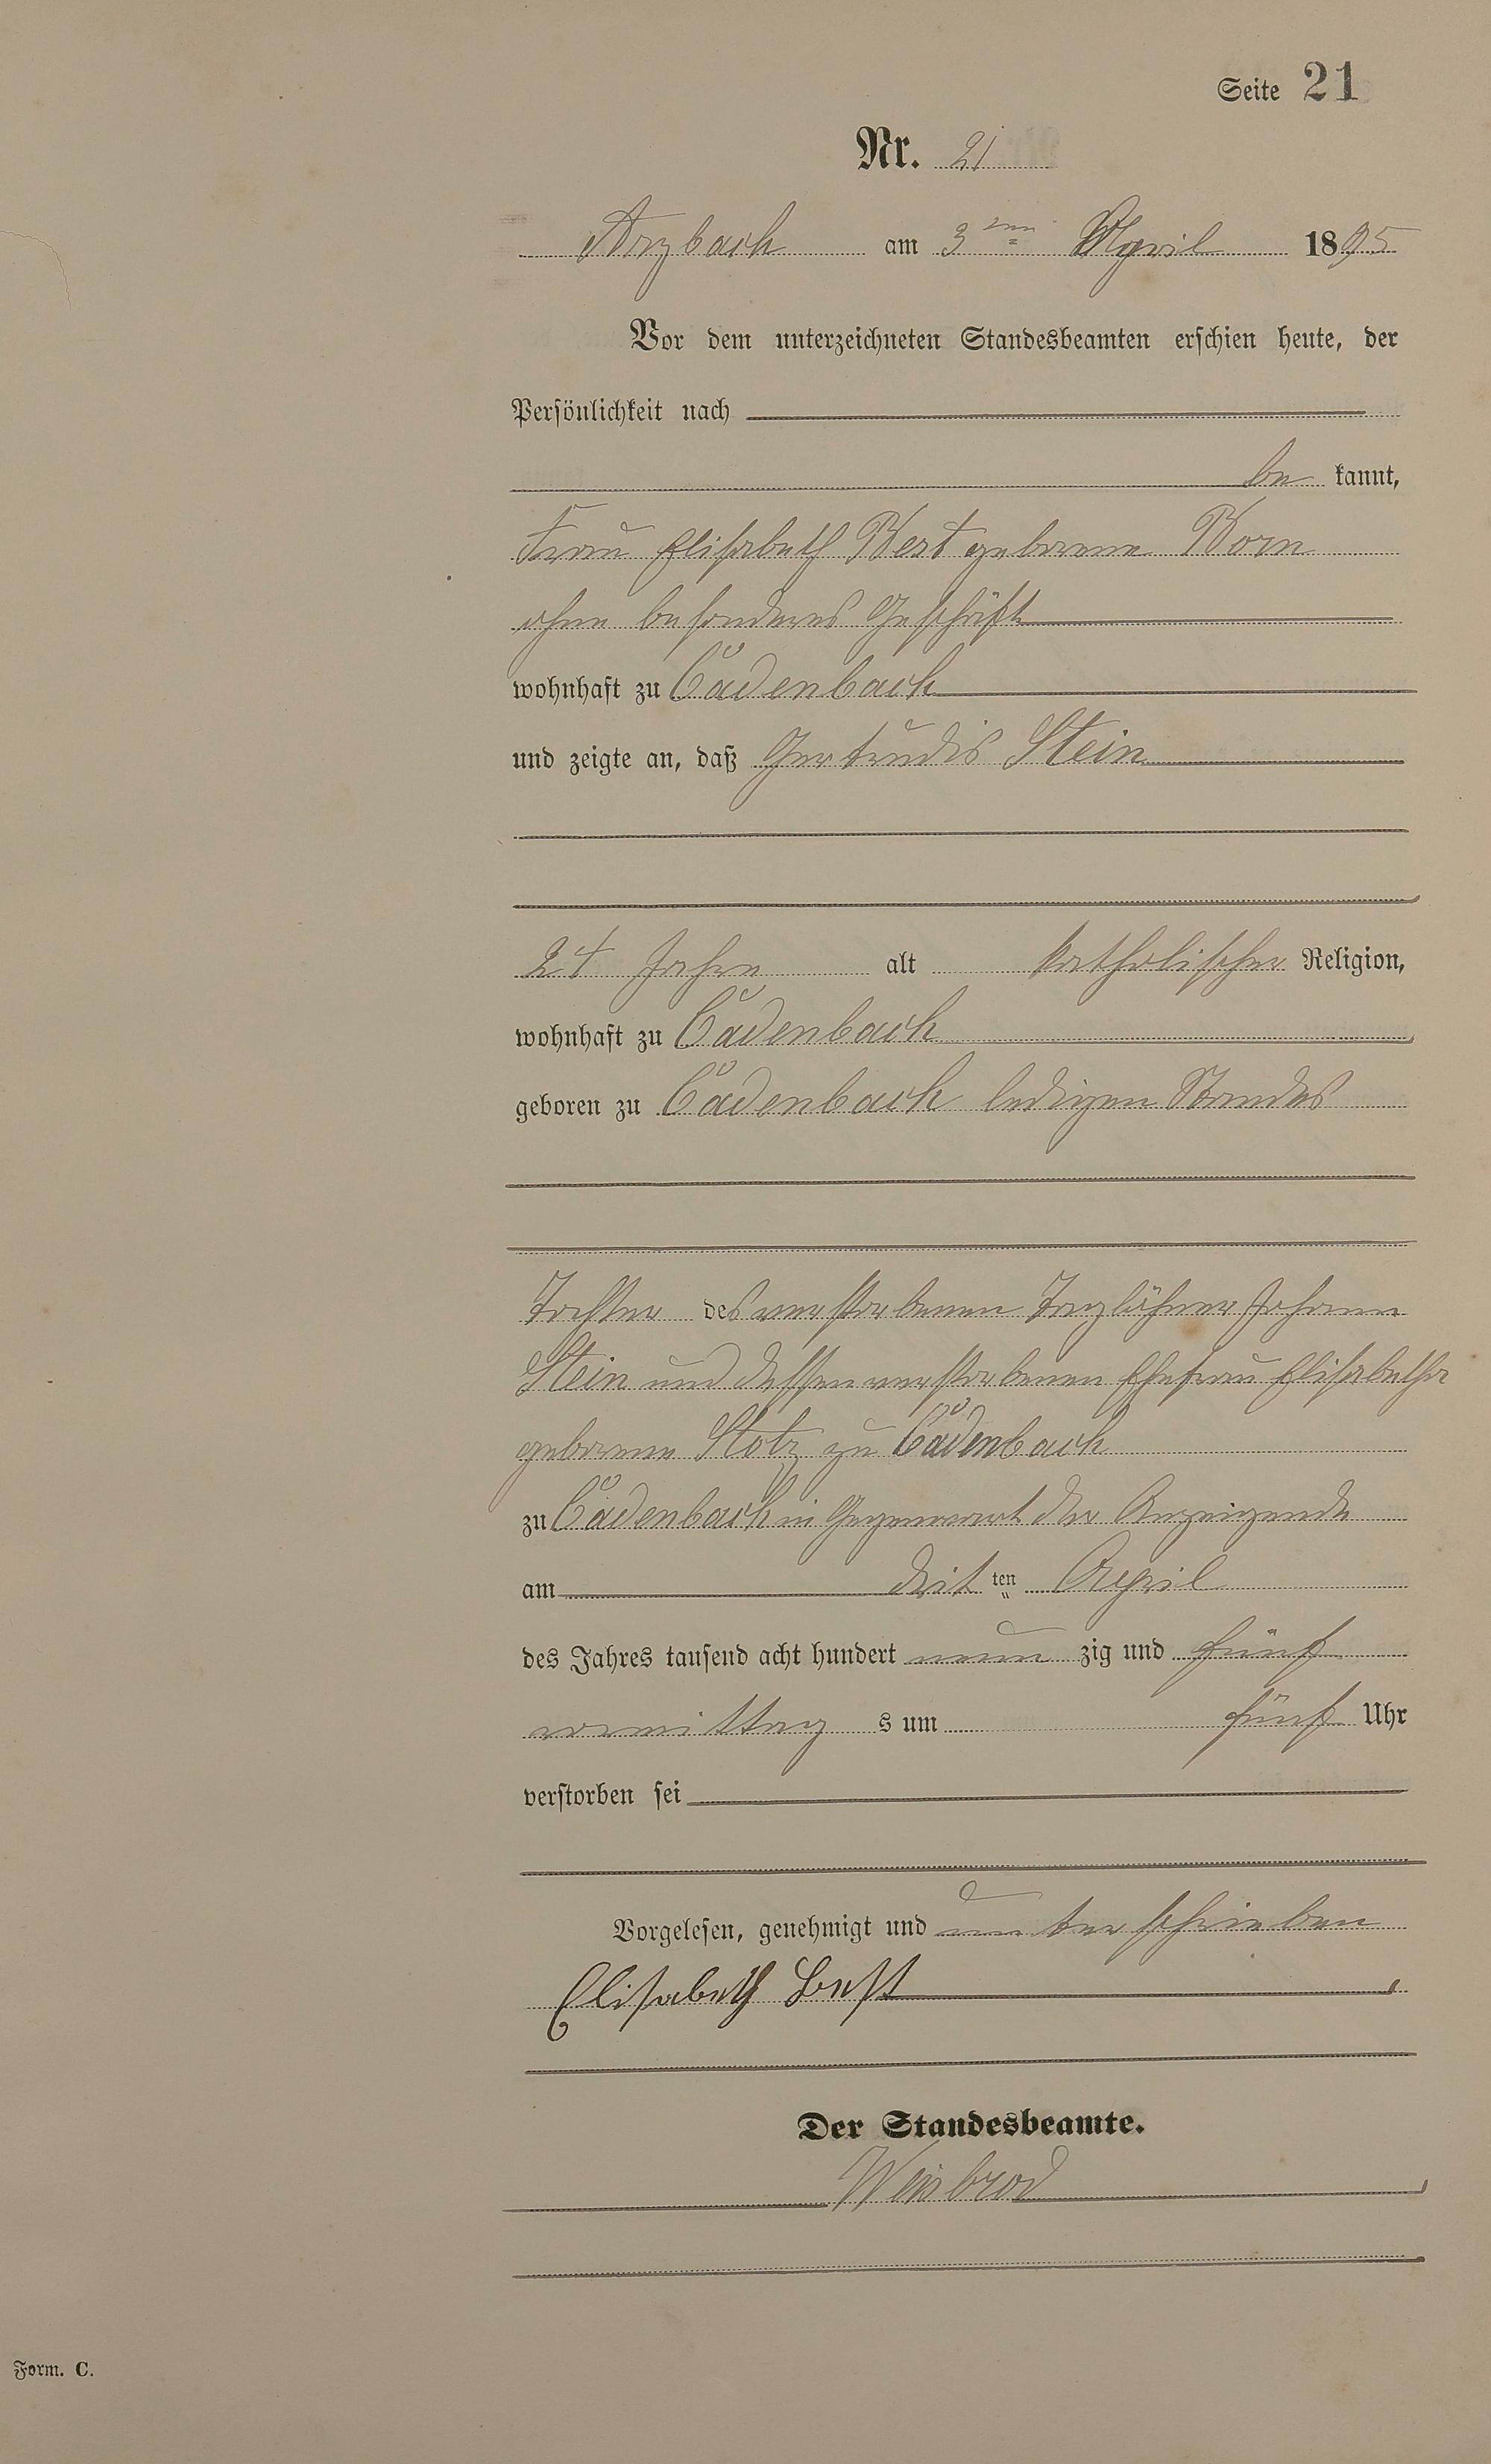 Seite 21
Nr. 21
Arzbach am 3ten April 1895
Vor dem unterzeichneten Standesbeamten erschien heute, der
Persönlichkeit nach
be kannt,
Frau Elisabeth Best geborene Born
ohne besonderes Geschäft
wohnhaft zu Cadenbach
und zeigte an, daß Gertrudis Stein
24 Jahre alt katholischer Religion,
wohnhaft zu Cadenbach
geboren zu Cadenbach ledigen Standes
Tochter des verstorbenen Taglöhner Johann
Stein und dessen verstorbenen Ehefrau Elisabetha
geborene Stotz zu Cadenbach
zu Cadenbach in Gegenwart der Anzeigende
am drit ten April
des Jahres tausend acht hundert neun zig und fünf
vormittag s um fünf Uhr
verstorben sei
Vorgelesen, genehmigt und unterschrieben
Elisabeth Best
Der Standesbeamte.
Weisbrod
Form. C.